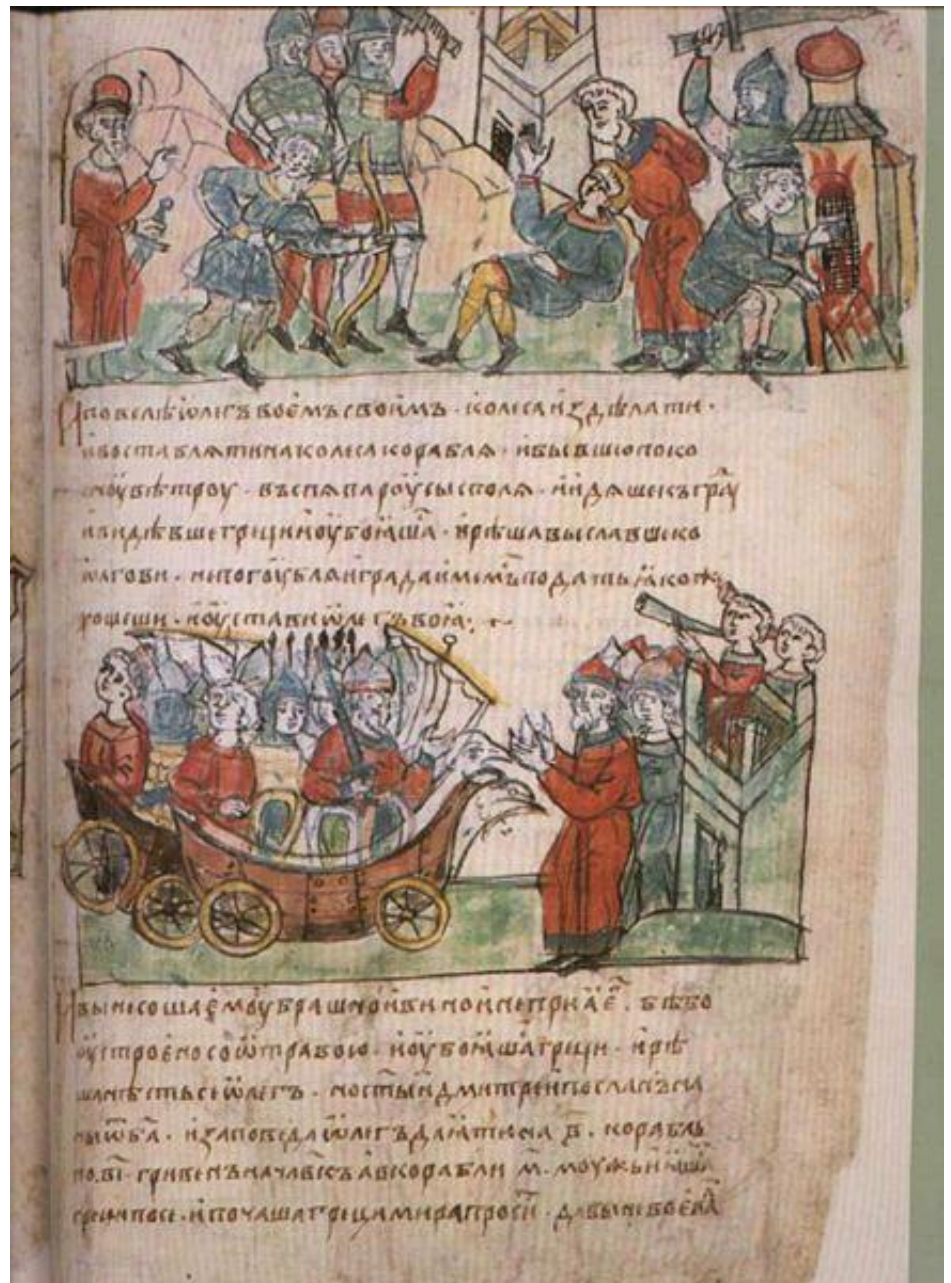 И повелѣ ѡлегъ воемъ своимъ · колеса издѣлати ·
и воставляти на колеса корабля · и бывшю поко
сноу вѣтроу · въспяша роусы с поля · и идяше къ граⷣ
и видѣвше грѣци и оубоꙗшаⷭ · и рѣша выславше ко
ѡлгови · не погоублꙗи града имемъ по дань ꙗкоже
хощеши · и оустави ѡлегъ воꙗ ·
И вынесоша емоу брашно и вино и не приꙗ еⷢ · бѣ бо
оустроено со ѿравою · и оубоꙗшаⷭ грѣци · и рѣ
ша нѣсть се ѡлегъ · но ст҃ыи дмитреи посланъ на
ны ѿ б҃а · и заповѣда ѡлегъ даꙗти на в҃ · корабль
по · в҃і · гривенъ на чл҃вкъ а в корабли м҃ · моужь и ꙗшаⷭ
грѣци по се · и почаша грѣци мира просиⷮ · дабы не воевал